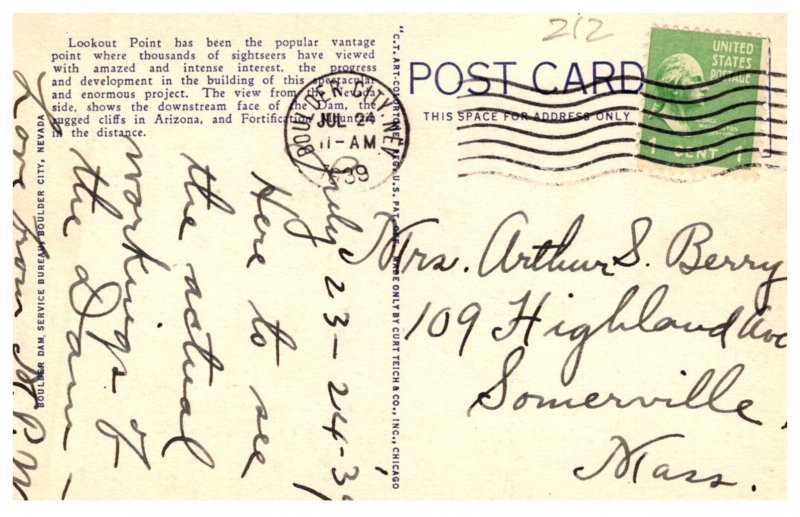 212
Lookout Point has been the popular vantage
point where thousands of sightseers have viewed
with amazed and intense interest, the progress
and development in the building of this spectacular
and enormous project. The view from the Nevada
side, shows the downstream face of the Dam, the
rugged cliffs in Arizona, and Fortification Mountain
in the distance.
BOULDER DAM, SERVICE BUREAU, BOULDER CITY, NEVADA
"C.T. ART-COLORTONE" REG. U.S. PAT. OFF. MADE ONLY BY CURT TEICH & CO., INC., CHICAGO
POST CARD
THIS SPACE FOR ADDRESS ONLY
BOULDER CITY, NEV.
JUL 24
11-AM
1939
UNITED
STATES
POSTAGE
1 CENT 1
July 23-24-39
Here to see
the actual
workings of
the Dam -
Love from
Mrs. Arthur S. Berry
109 Highland Ave
Somerville,
Mass.